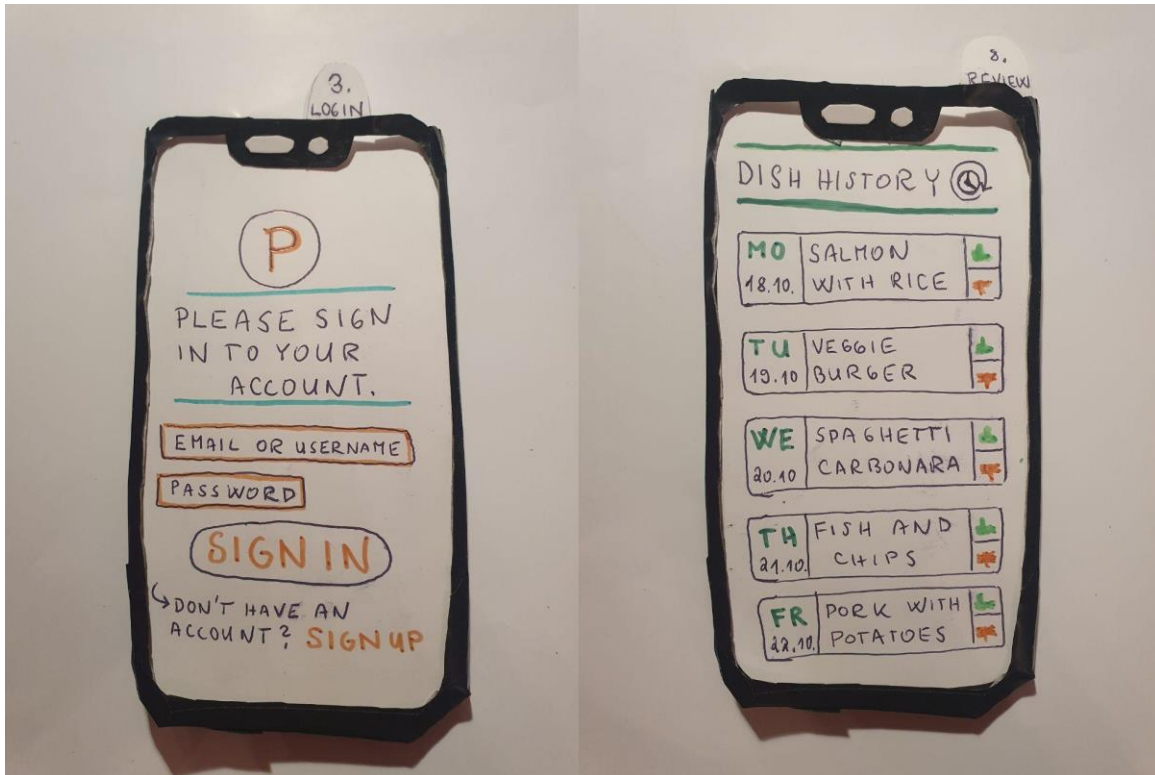 3.
LOGIN
P
PLEASE SIGN
IN TO YOUR
ACCOUNT.
EMAIL OR USERNAME
PASSWORD
SIGN IN
DON'T HAVE AN
ACCOUNT? SIGN UP
8.
REVIEW
DISH HISTORY
MO SALMON
18.10. WITH RICE
TU VEGGIE
19.10 BURGER
WE SPAGHETTI
20.10 CARBONARA
TH FISH AND
21.10. CHIPS
FR PORK WITH
22.10. POTATOES